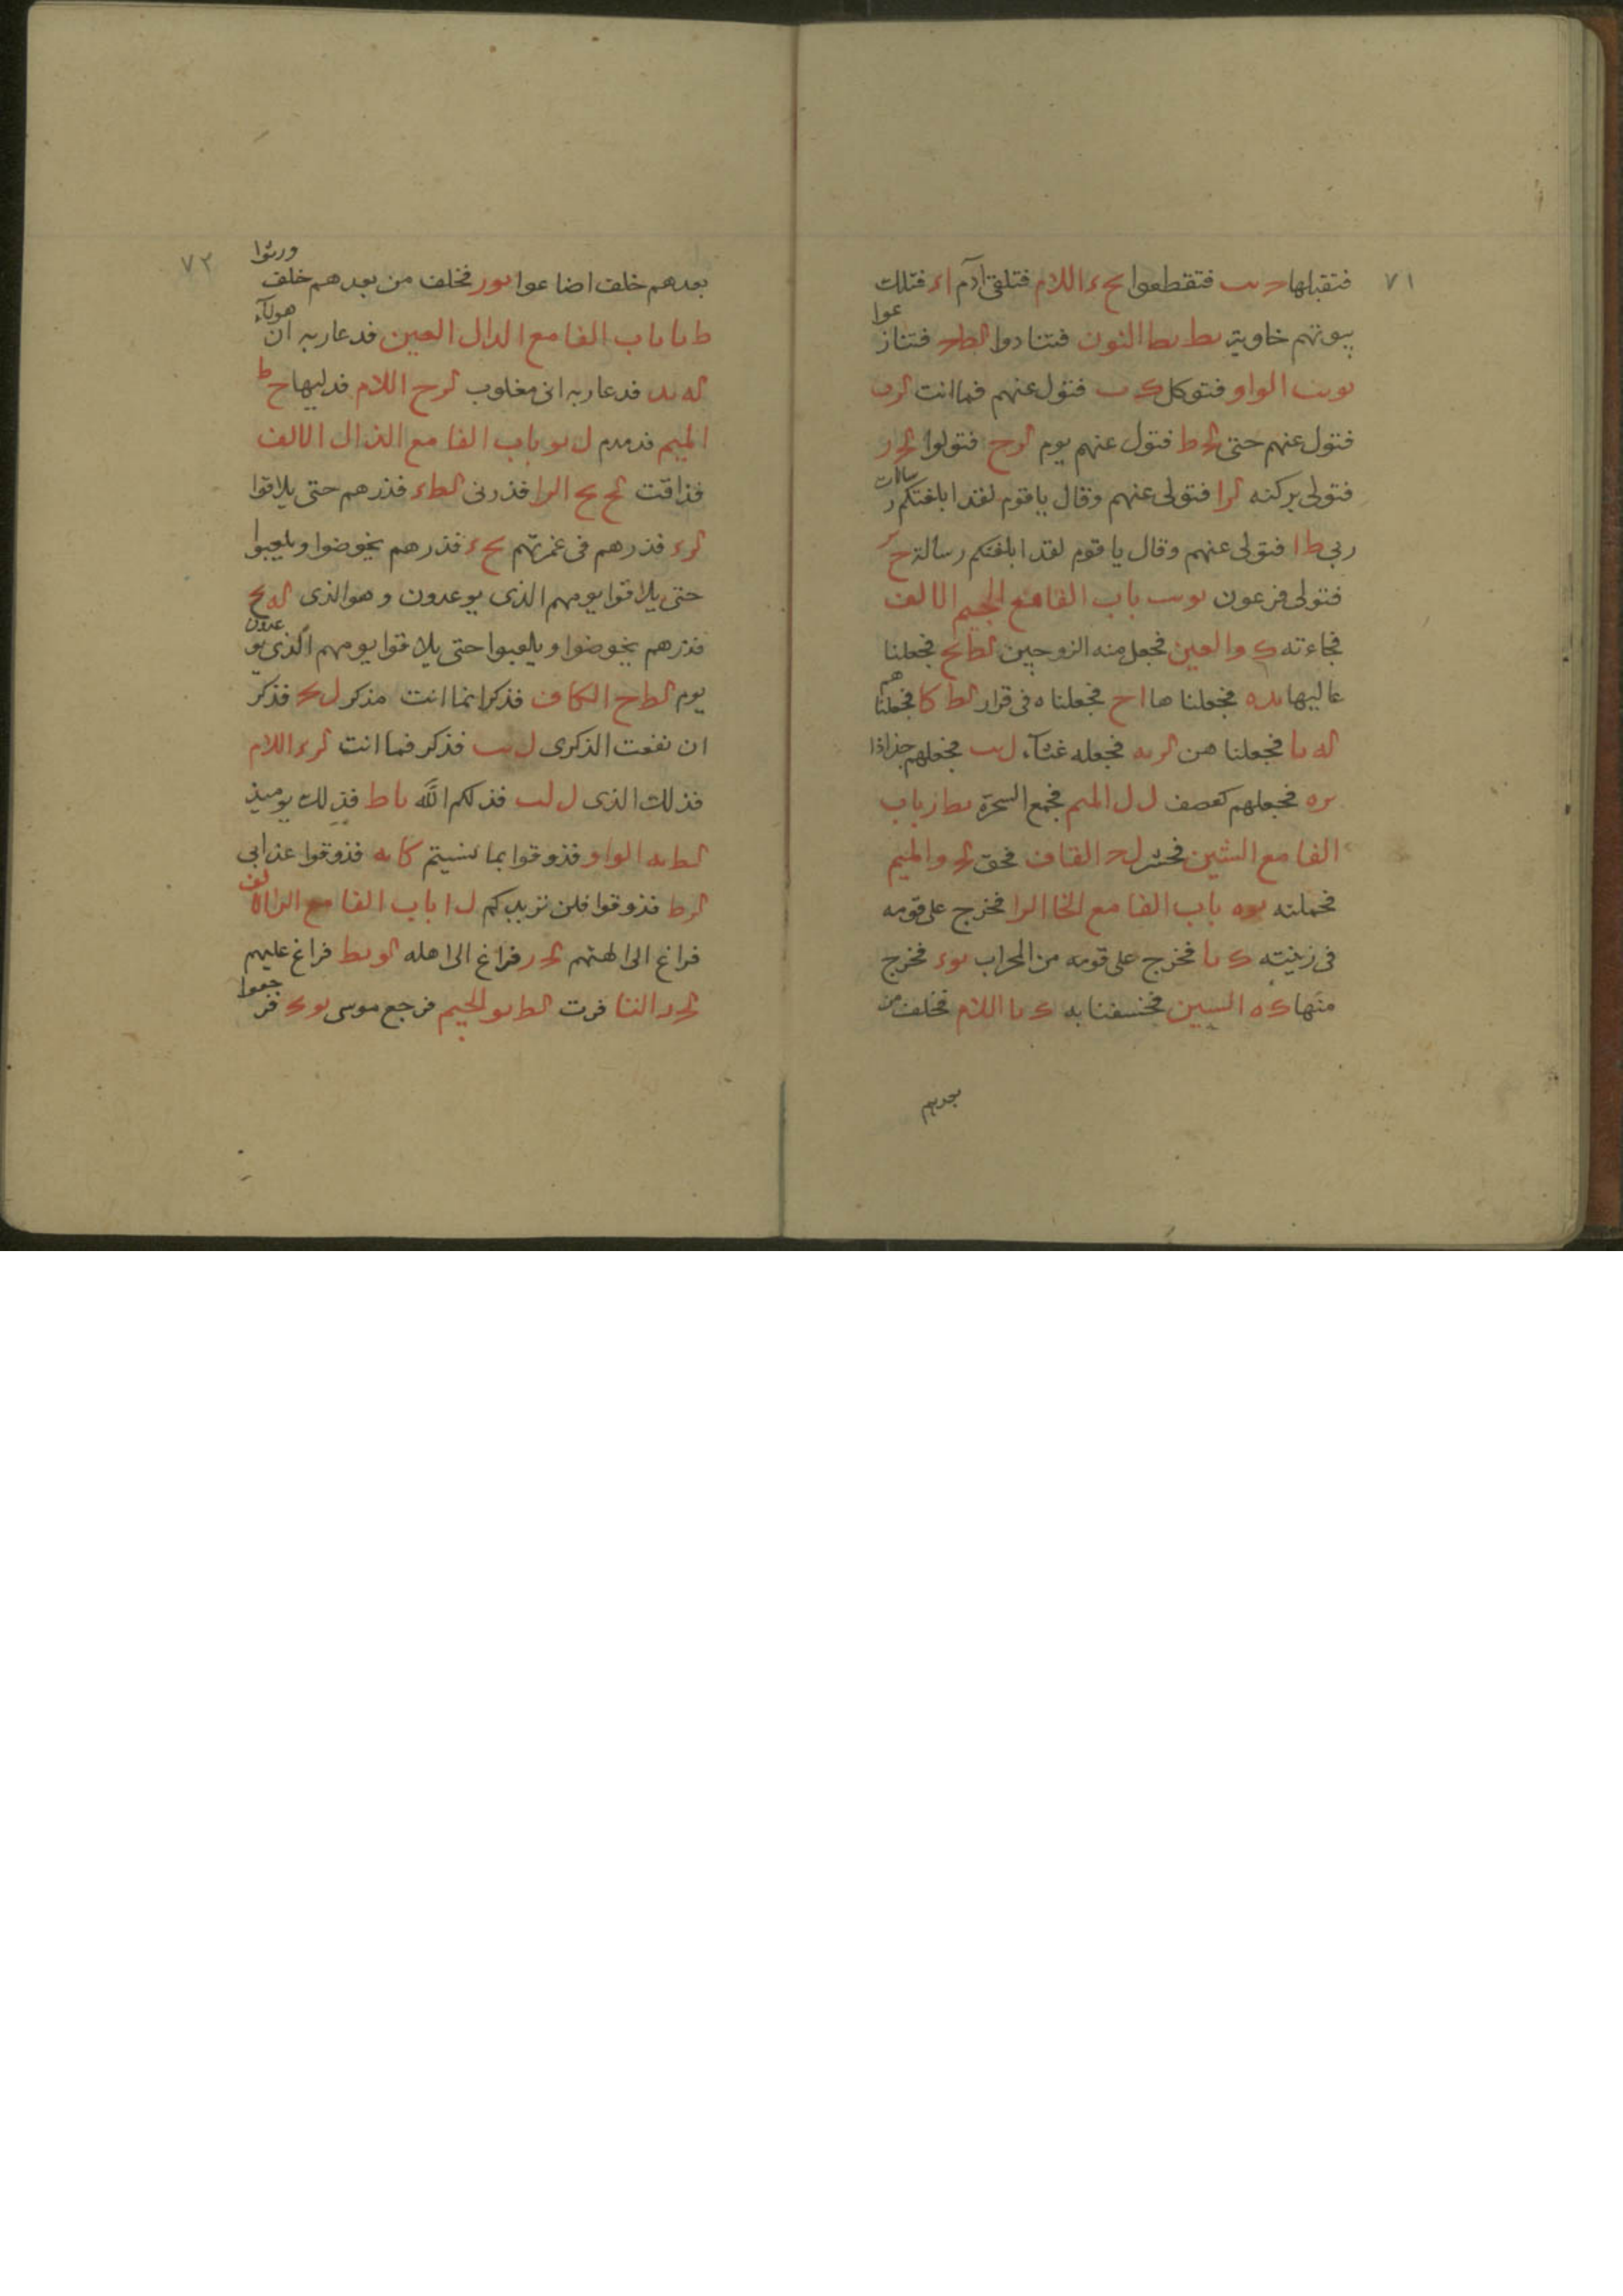 ٧١
فتقبلها حىب فتقطعوا ىح ء اللام فتلقى آدم اء فتلك
بيوتهم خاوية ىط ىط النون فتنادوا لطح فتناز
عوا
ىوىت الواو فتوكل ك ب فتول عنهم فما انت لرب
فتول عنهم حتى لح ط فتول عنهم يوم لرح فتولوا لح ر
فتولى بركنه لرا فتولى عنهم وقال ياقوم لقد ابلغتكم ر
سالات
ربى ط ا فتولى عنهم وقال يا قوم لقد ابلغتكم رسالة ح ر
فتولى فرعون ىوىب باب الفا مع الجيم الالف
فجاءته ك و العين فجعل منه الزوجين لطىح فجعلنا
عاليها ىده فجعلنا ها اح فجعلناه فى قرار لط كا فجعلنا
هم
له ىا فجعلنا هن لرىه فجعله غثآء ل ىب فجعلهم جذاذا
ىره فجعلهم كعصف ل ل الميم فجمع السحرة ىط ز باب
الفا مع الشين فحشر لح القاف فحق لح و الميم
فحملته ىوه باب الفا مع الخا الرا فخرج على قومه
فى زينته ك ىا فخرج على قومه من المحراب ىوء فخرج
منها ك ه السين فخسفنا به ك ىا اللام فخلف من
بعدهم
٧٢
بعدهم خلف اضاعوا ىور فخلف من بعدهم خلف
ورثوا
ط ىا باب الفا مع الدال العين فدعا ربه ان
هولآء
له ىد فدعا ربه انى مغلوب لرح اللام فدليها ح ط
الميم فدمدم ل ىو باب الفا مع الذال الالف
فذاقت لح ىح الرا فذرنى لطء فذرهم حتى يلاقوا
لرء فذرهم فى غمرتهم ىحء فذرهم يخوضوا ويلعبوا
حتى يلاقوا يومهم الذى يوعدون وهو الذى له ىح
فذرهم يخوضوا ويلعبوا حتى يلاقوا يومهم الذى يو
عدون
يوم لطح الكاف فذكر انما انت مذكر ل ك فذكر
ان نفعت الذكرى ل ىب فذكر فما انت لرء اللام
فذلك الذى ل لب فذلكم الله ىا ط فذلك يوميذ
لطىه الواو فذوقوا بما نسيتم كا ىه فذوقوا عذابى
لرط فذوقوا فلن نزيدكم ل ا باب الفا مع الرا الا
لف
فراغ الى الهتهم لح ر فراغ الى اهله لوىط فراغ عليهم
لح ر التا فرت لطىو الجيم فرجع موسى ىوك فر
جعوا